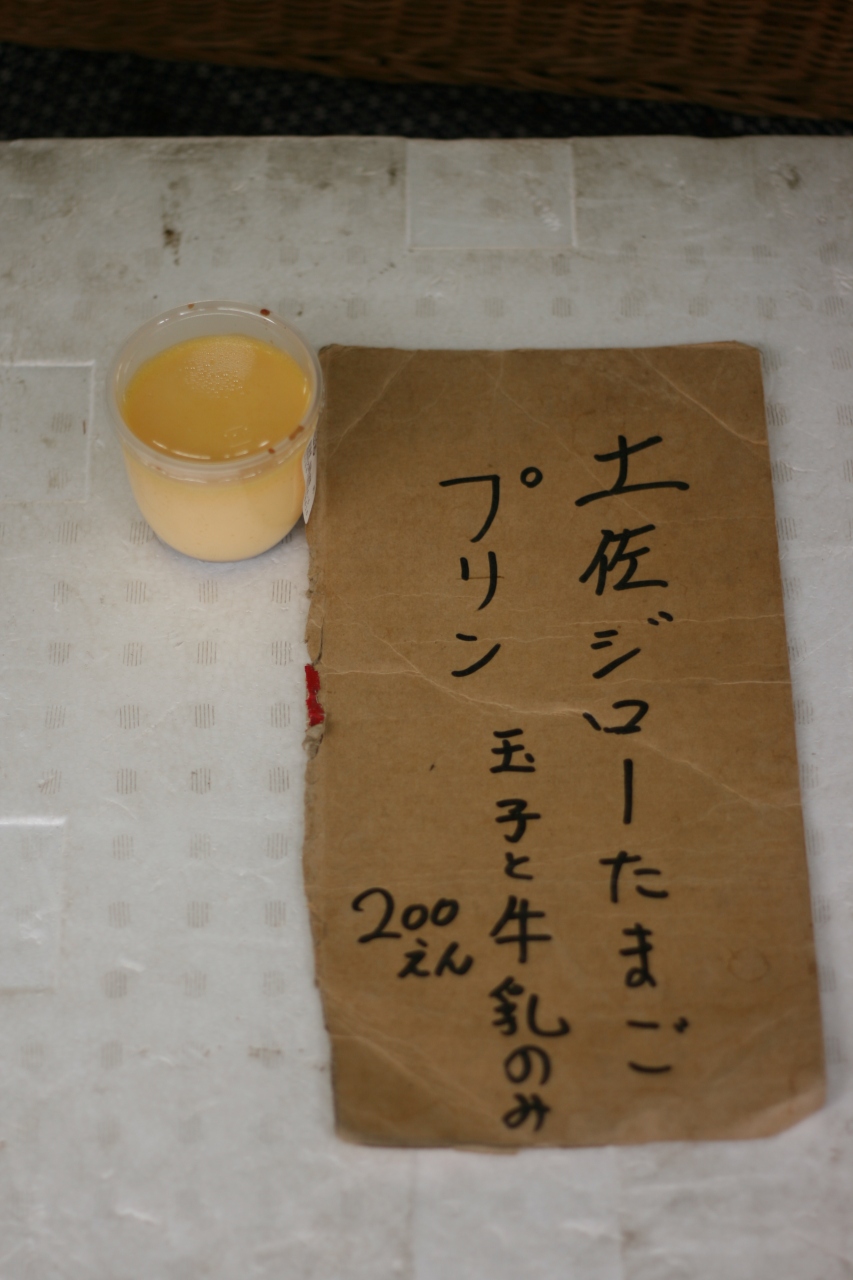 土佐ジローたまご
プリン
玉子と牛乳のみ
200
えん